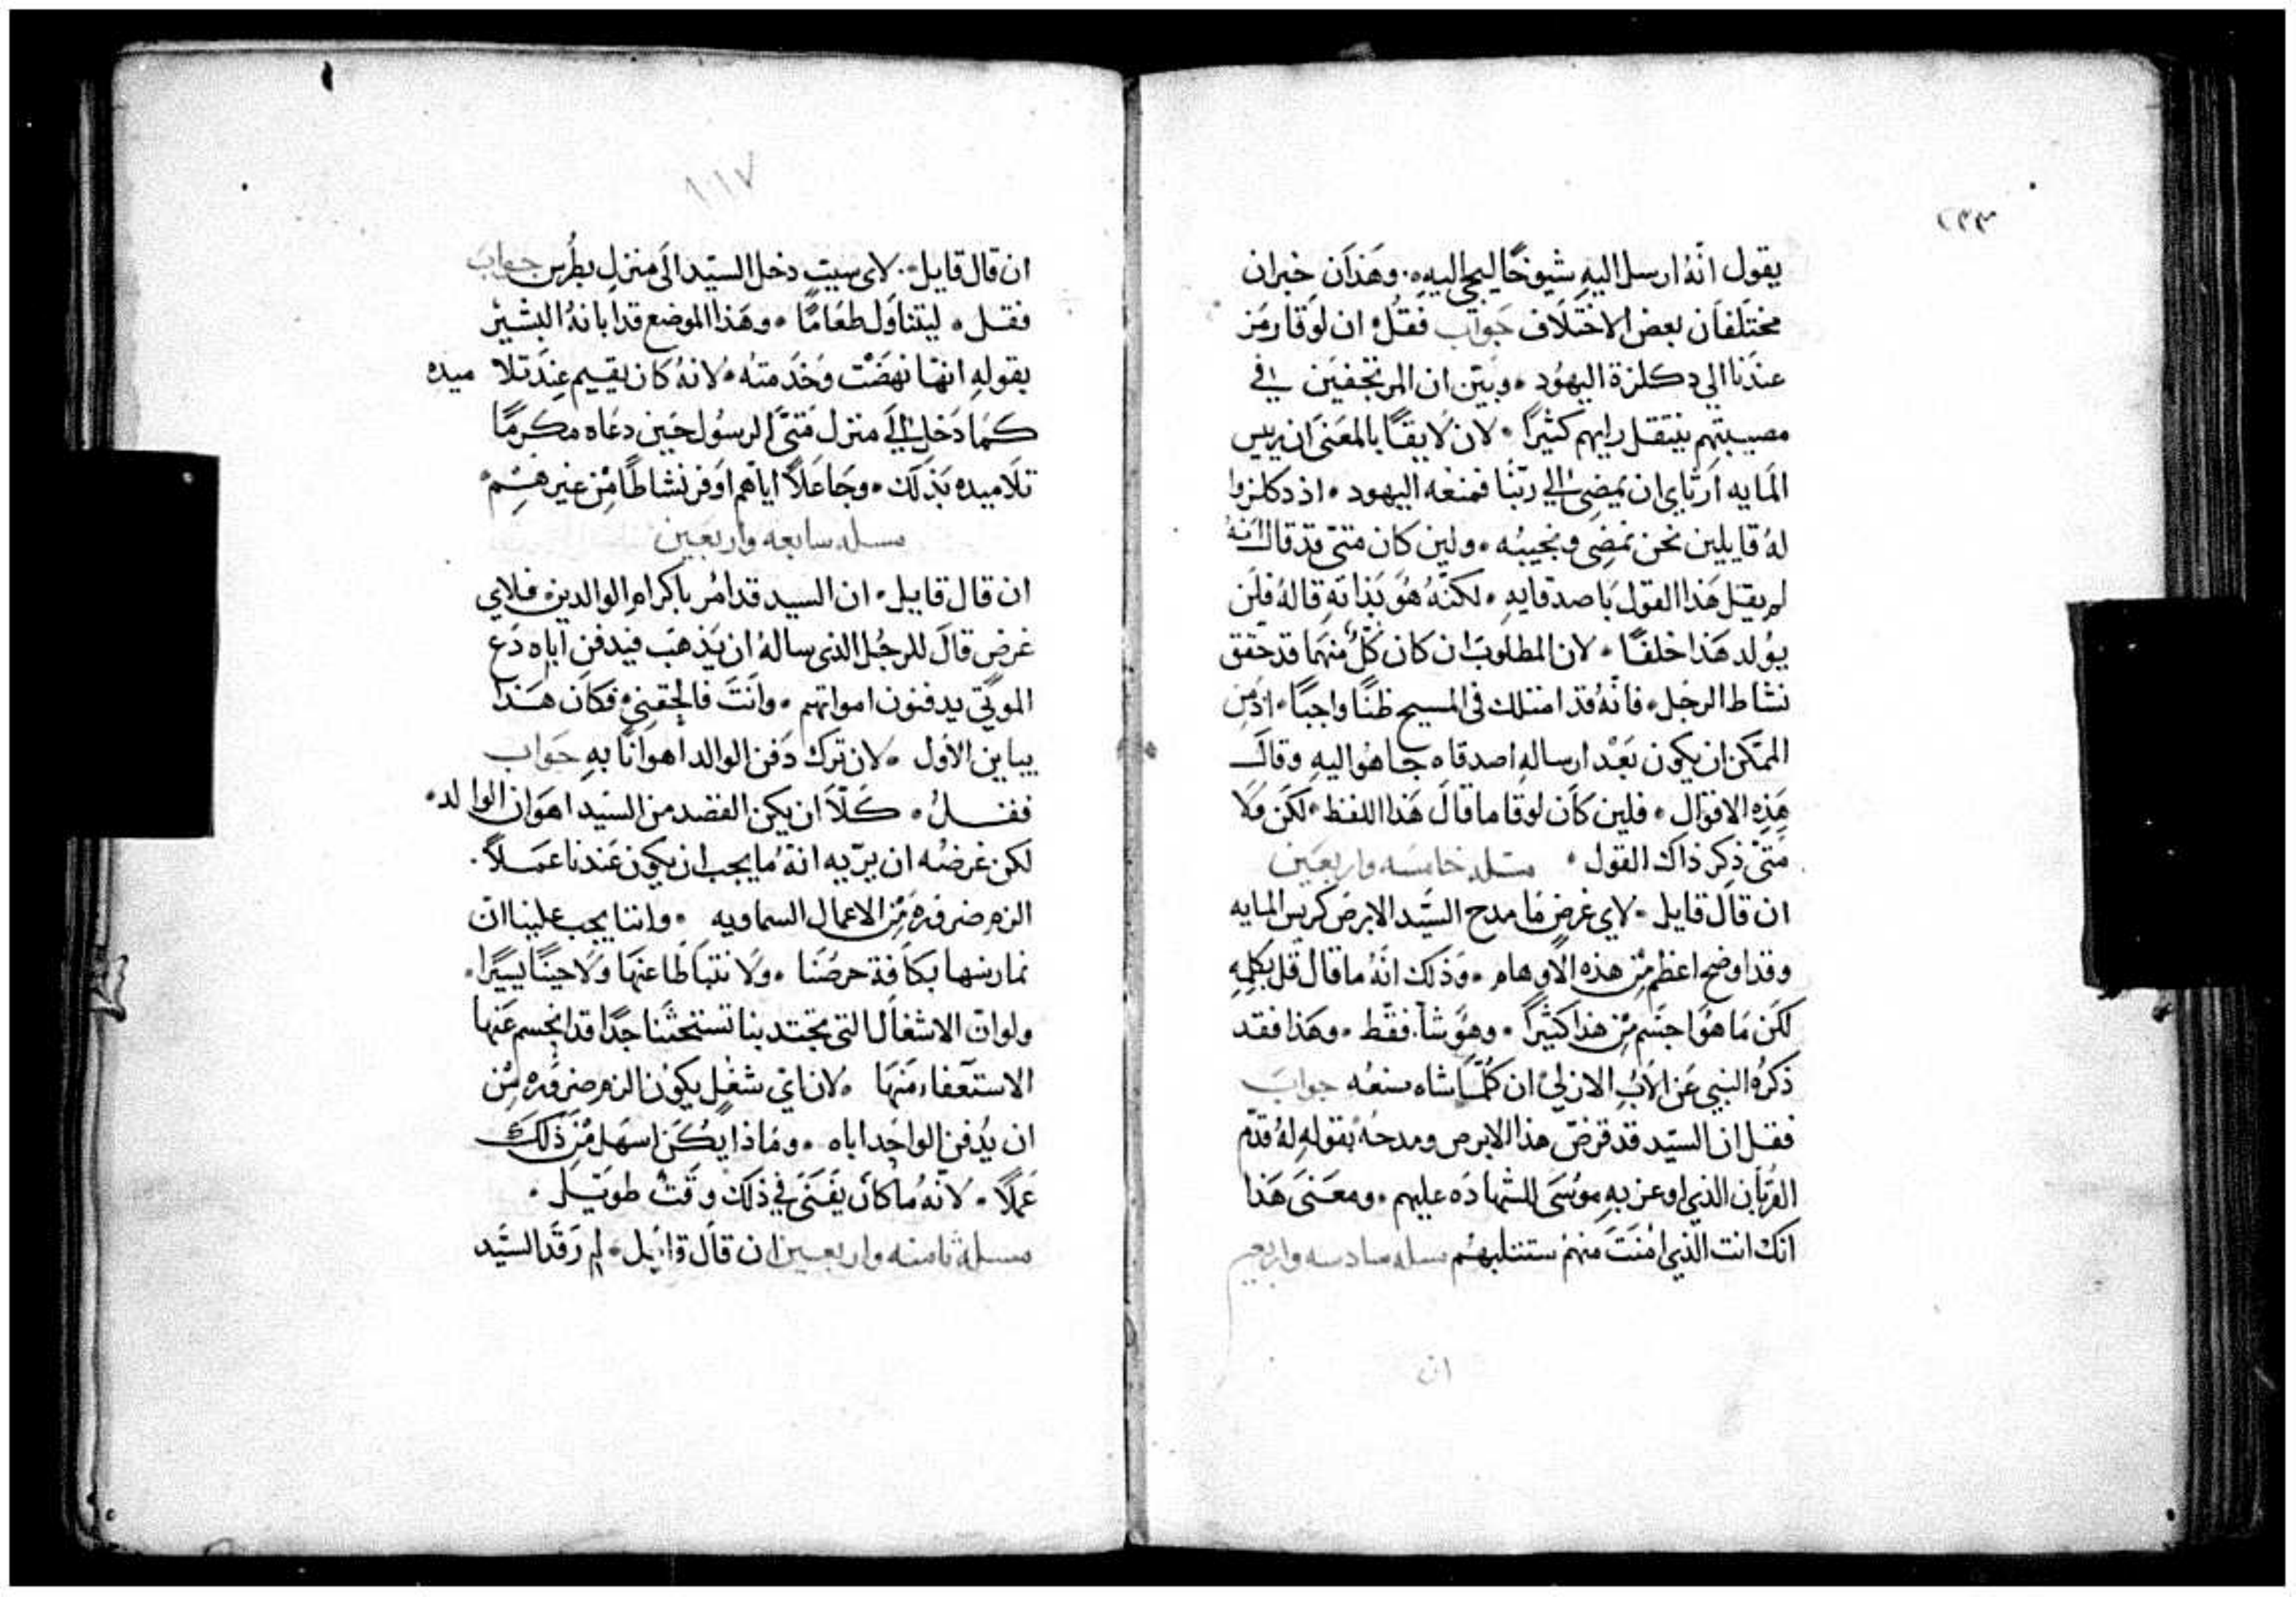 ٢٣٣
يقول انّهُ ارسل اليهِ شيوخًا ليجي اليهِ. وهَذان خبران
مختَلفاَن بعض الاختلَاف جَوَاب فقلْ ان لوَقا رمَز
عندَنا الي دكلزة اليهُود. وبيّن ان المرتجفيَن في
مصيبتهم ينتقل رايهم كثيرًا. لان لَا يقًا بالمعَنىَ ان رييس
المَايه اَرتَاي ان يمضِى الي ربّنَا فمنعه اليهود. اذ دكلزوا
لهُ قايلين نحن نمضِى ونجيبُه. ولين كان متىّ قد قال انهُ
لم يقل هَذا القول باصدقايهِ. لكنّهُ هُوَ بذاتهِ قالهُ فلَن
يوُلد هَذا خلفًا. لان المطلوبَ ان كان كُلّ منهمَا قد حقق
نشاط الرجُل. فانّهُ قد امتلك في المسيح ظنًا واجبًا. اذ مِن
الممَكن ان يكون بَعْد ارسالهِ اصدقاه جا هُو اليهِ وقالَ
هَذِهِ الاقوَال. فلين كاَن لوقا ما قالَ هَذا اللفظ. لكَن ولَا
متىْ ذِكر ذاكَ القول. مسَله خامسَه واربعَين
ان قاَل قايل. لاي غرضٍ مَا مدح السّيد الابرصَ كريس المايه
وقد اوضح اعظم مِن هذه الاَوهام. وَذلك انّهُ ما قال قُل بكلِمهِ
لكَن مَا هُوَ اجسَم مِن هذا كثيرًا. وهوَُ شآ. فقط. وهَذا فقد
ذكرُه النبي عَن الاَبُ الازلىْ ان كلّمَا شاه صنعُه جوابَ
فقل ان السيّد قد قرضَ هذا الابرص ومدحهُ بقولهِ لهُ قدّم
القربَان الذي اوعز بهِ موُسَى للشهادَه عليهم. ومعَنىَ هَذا
انكَ انت الذي امنَتَ منهمْ ستنلبهُم مسله سادسه واربعين
ان
١١٧
ان قال قايل. لاي سبب دخل السيّد الَى منزلِ بطُرس جواب
فقل. ليتنَاوَل طعَامًا. وهَذا الموضع قد ابانهُ البشيْر
بقولهِ انهّا نهَضتْ وَخَدمتهْ. لانهُ كان يقيم عندَ تلاميده
كمَا دَخل الىَ منزل مَتىَّ الرسُول حَين دعَاه مكرمًا
تلَاميده بَذلَك. وجَاعلًا اياهم اوَفر نشاطًا مِن غيرهِم
مسله سابعه واربعَين
ان قال قايل. ان السيد قد امُر باكرامِ الوالدين. فلاي
غرضٍ قالَ للرجُل الذى سالهُ ان يَذهَب فيدفن اباه دَع
الموتَى يدفنون امواتهم. وانَتَ فالحقنِي. فكَان هَذا
يباين الاوَل. لان ترك دَفن الوالد اهوانًا بهِ جَوَاب
فقلْ. كلّاَ ان يكن القصد من السّيد اهوَان الوالد.
لكن غرضُه ان يرّيه انهُ ما يجب ان يكون عَندنا عمَلًا.
الزم ضروره مِن الاعمال السماويه. واننا يجب علينا ان
نمارسها بكَافة حرصُنا. ولَا نتباطَا عنهَا ولَا حينًا يسيرًا.
ولو ان الاشغاَل التى تجتدبنا تستحثّنا جدًا قد انحسم عنَها
الاستعَفاء منَها. لان اي شغلٍ يكوُن الزم ضروُره مِن
ان يُدفن الواحد اباه. ومَاذا يُكَن اسهَل مِن ذَلك
عَملًا. لانّهُ ما كاَن يفَنىَ في ذلك وقَتْ طويَل.
مسلهْ ثامنه واربعين ان قاَل قايَل. لِم رَقَد السيَّد